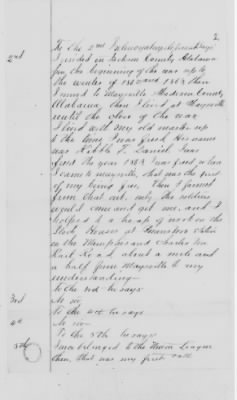 2
2nd To the 2nd Interrogatory deponent says
I resided in Jackson County Alabama
from the beginning of the war up to
the winter of 1863 and 1864 then
I moved to Maysville Madison County
Alabama, then I lived at Maysville
until the close of the war
I lived with my old master up
to the time I was freed His name
was Daniel I was
freed the year 1864 I was free when
I came to Maysville, that was the first
of my being free. Then I farmed
from that out, only the soldiers
would come and get me, and I
helped to a heap of work on the
Stock Houses at Brownsboro Station
on the Memphis and Charleston
Rail Road about a mile and
a half from Maysville to my
understanding
To the 3rd he says
3rd No sir
To the 4th he says
4th No sir
To the 5th he says
5th I once belonged to the Union League
then, that was my first vote